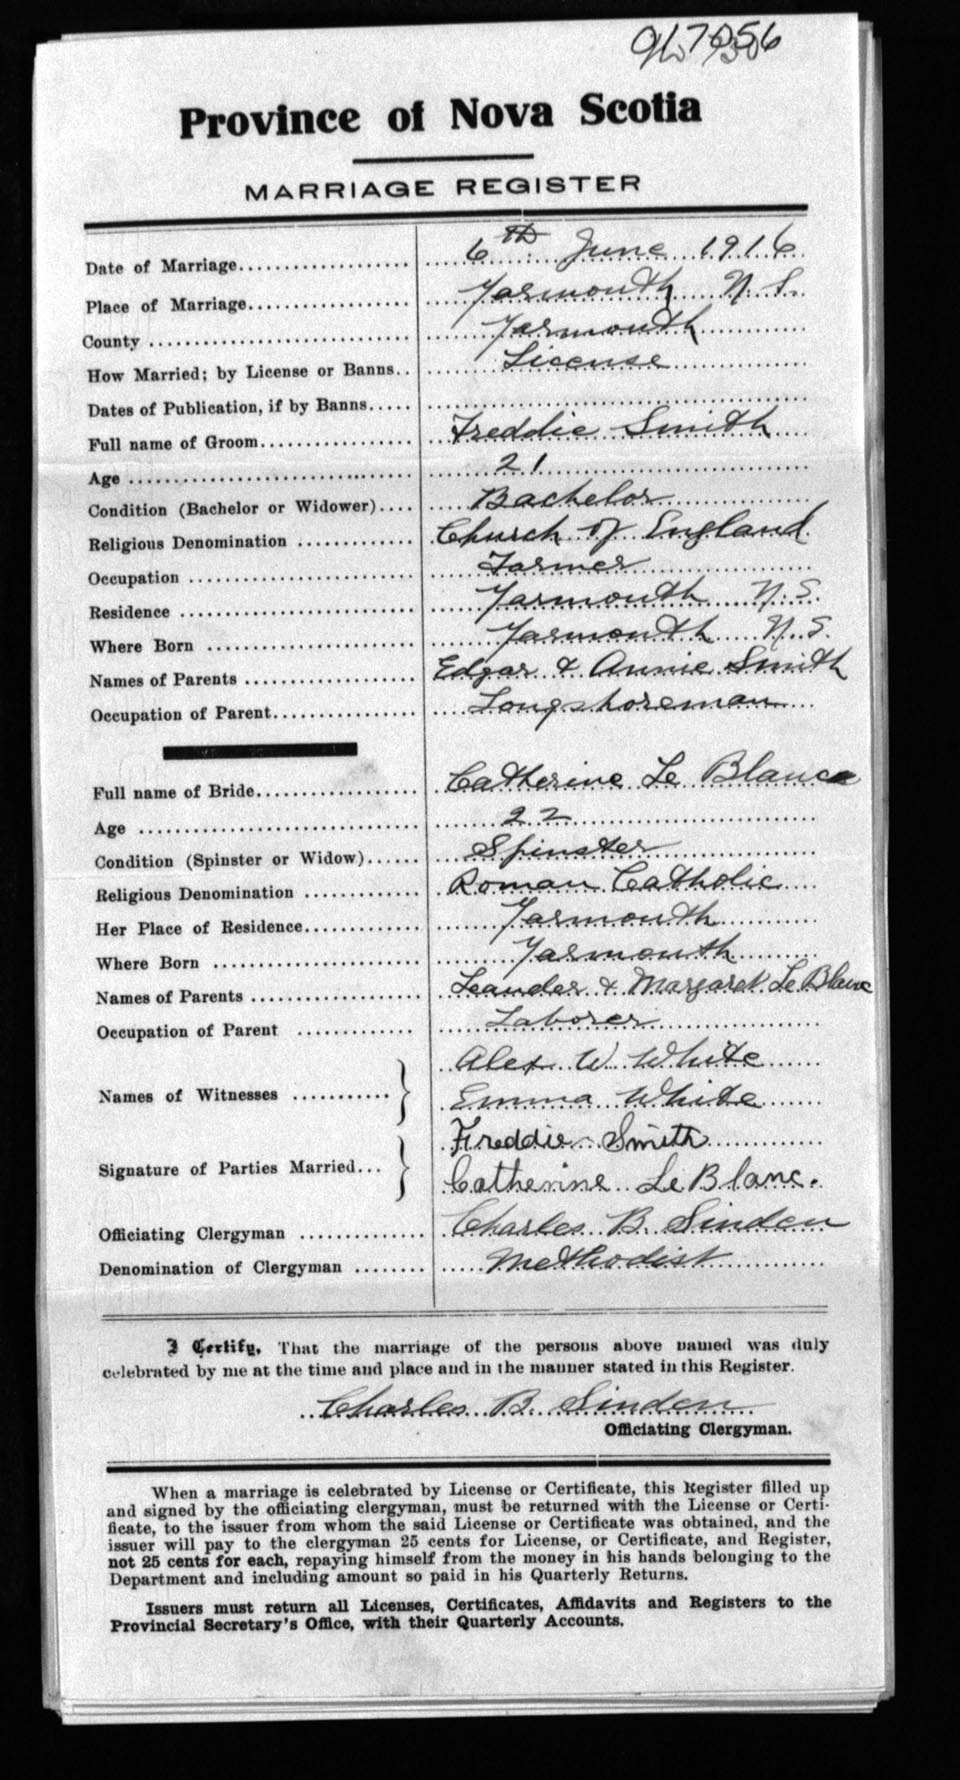 7056
Province of Nova Scotia
MARRIAGE REGISTER
Date of Marriage.................... 6th June 1916
Place of Marriage.................. Yarmouth N. S.
County ............................. Yarmouth
How Married; by License or Banns.. License
Dates of Publication, if by Banns.....
Full name of Groom.................. Freddie Smith
Age ................................ 21
Condition (Bachelor or Widower).... Bachelor
Religious Denomination ............. Church of England
Occupation ......................... Farmer
Residence .......................... Yarmouth N. S.
Where Born ........................ Yarmouth N. S.
Names of Parents ................... Edgar & Annie Smith
Occupation of Parent................ Longshoreman
Full name of Bride.................. Catherine Le Blanc
Age ................................ 22
Condition (Spinster or Widow)...... Spinster
Religious Denomination ............. Roman Catholic
Her Place of Residence............. Yarmouth
Where Born ........................ Yarmouth
Names of Parents ................... Leander & Margaret Le Blanc
Occupation of Parent ............. Laborer
Names of Witnesses ........... } Alex W. White
Emma White
Signature of Parties Married... } Freddie Smith
Catherine Le Blanc.
Officiating Clergyman .............. Charles B. Sinden
Denomination of Clergyman ........ Methodist
I Certify, That the marriage of the persons above named was duly
celebrated by me at the time and place and in the manner stated in this Register.
Charles B. Sinden
Officiating Clergyman.
When a marriage is celebrated by License or Certificate, this Register filled up
and signed by the officiating clergyman, must be returned with the License or Certi-
ficate, to the issuer from whom the said License or Certificate was obtained, and the
issuer will pay to the clergyman 25 cents for License, or Certificate, and Register,
not 25 cents for each, repaying himself from the money in his hands belonging to the
Department and including amount so paid in his Quarterly Returns.
Issuers must return all Licenses, Certificates, Affidavits and Registers to the
Provincial Secretary's Office, with their Quarterly Accounts.